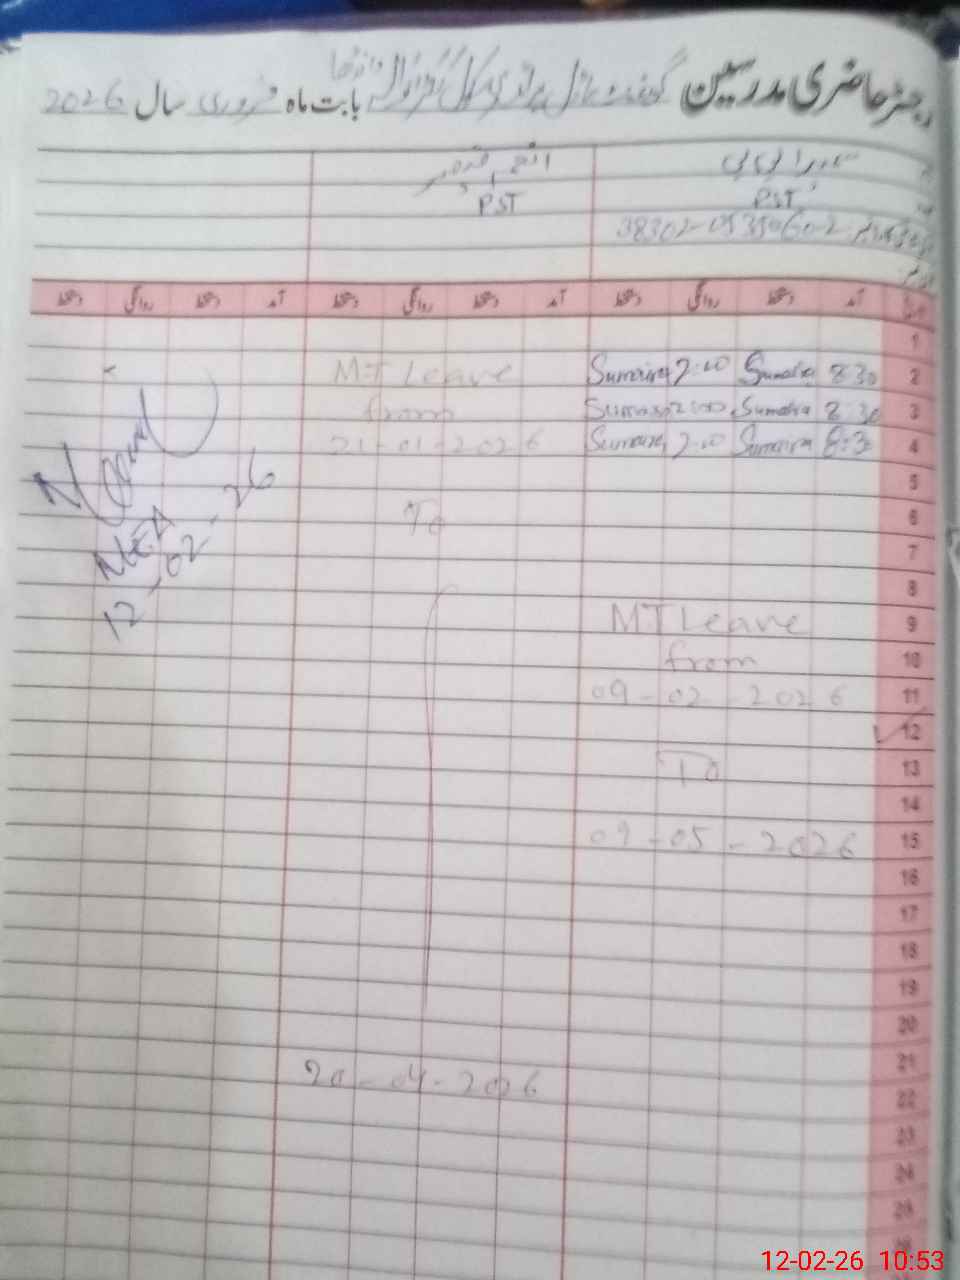 رجسٹر حاضری مدرسین گورنمنٹ ماڈل پرائمری سکول
بابت ماہ فروری سال 2026
سمیرا بی بی
PST PST
38302-0535060-2
آمد دستخط روانگی دستخط آمد دستخط روانگی دستخط آمد دستخط روانگی دستخط
1
M.T Leave Sumaira 2:00 Sumaira 8:30 2
from Sumaira 2:00 Sumaira 8:30 3
21-01-2026 Sumaira 2:00 Sumaira 8:3 4
5
To 6
7
8
M.T Leave 9
from 10
09-02-2026 11
12
To 13
14
09-05-2026 15
16
17
18
19
20
21
20-04-2026 22
23
24
25
26
12-02-26
12-02-26 10:53